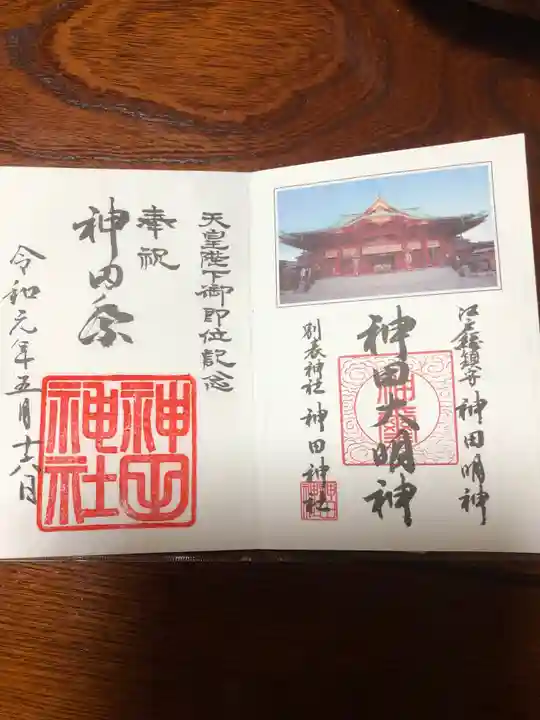 江戸総鎮守 神田明神
神田大明神
別表神社 神田神社
神田神社
天皇陛下御即位記念
奉祝
神田祭
令和元年五月十八日
神田神社